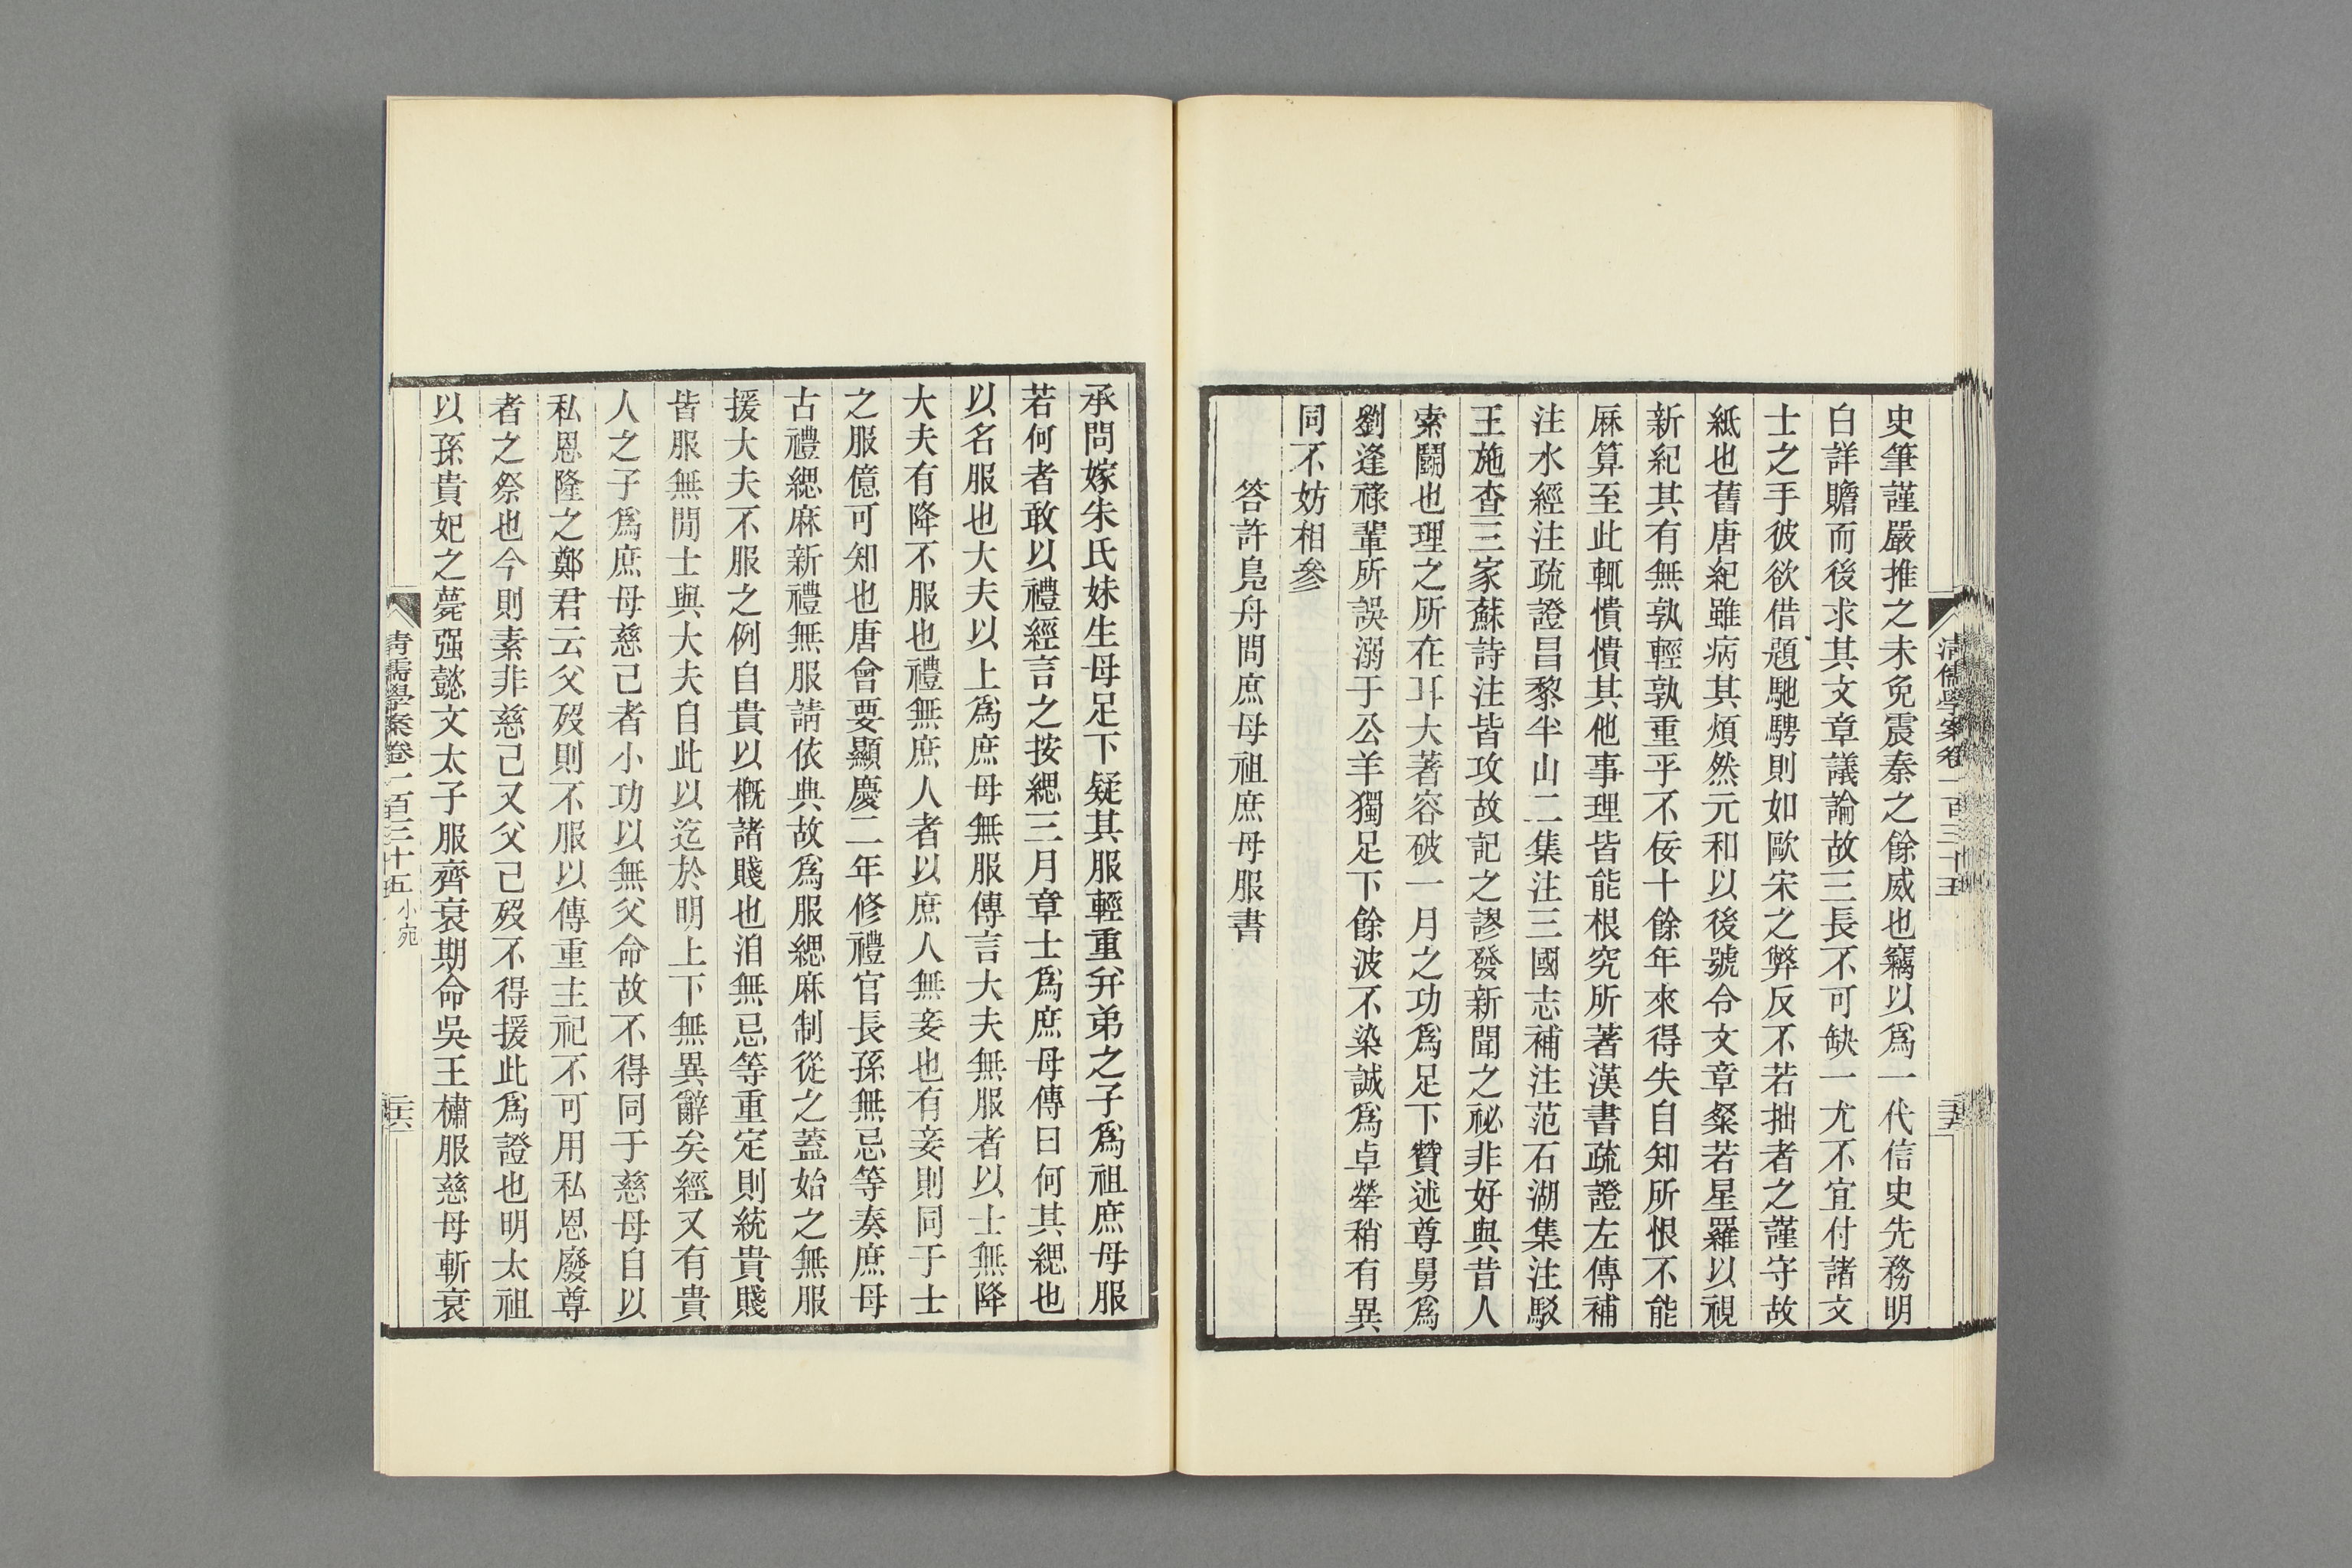 清儒學案卷一百三十五
史筆謹嚴推之未免震秦之餘威也竊以爲一代信史先務明
白詳贍而後求其文章議論故三長不可缺一尤不宜付諸文
士之手彼欲借題馳騁則如歐宋之弊反不若拙者之謹守故
紙也舊唐紀雖病其煩然元和以後號令文章粲若星羅以視
新紀其有無孰輕孰重乎不佞十餘年來得失自知所恨不能
厤算至此輒憒憒其他事理皆能根究所著漢書疏證左傳補
注水經注疏證昌黎半山二集注三國志補注范石湖集注駁
王施查三家蘇詩注皆攻故記之謬發新聞之祕非好與昔人
索鬭也理之所在耳大著容破一月之功爲足下贊述尊舅爲
劉逢祿輩所誤溺于公羊獨足下餘波不染誠爲卓犖稍有異
同不妨相參
答許鳧舟問庶母祖庶母服書
承問嫁朱氏妹生母足下疑其服輕重弁弟之子爲祖庶母服
若何者敢以禮經言之按緦三月章士爲庶母傳曰何其緦也
以名服也大夫以上爲庶母無服傳言大夫無服者以士無降
大夫有降不服也禮無庶人者以庶人無妾也有妾則同于士
之服億可知也唐會要顯慶二年修禮官長孫無忌等奏庶母
古禮緦麻新禮無服請依典故爲服緦麻制從之蓋始之無服
援大夫不服之例自貴以概諸賤也洎無忌等重定則統貴賤
皆服無閒士與大夫自此以迄於明上下無異辭矣經又有貴
人之子爲庶母慈己者小功以無父命故不得同于慈母自以
私恩隆之鄭君云父歿則不服以傳重主祀不可用私恩廢尊
者之祭也今則素非慈己又父己歿不得援此爲證也明太祖
以孫貴妃之薨强懿文太子服齊衰期命吳王橚服慈母斬衰
清儒學案卷一百三十五 小宛
二十六